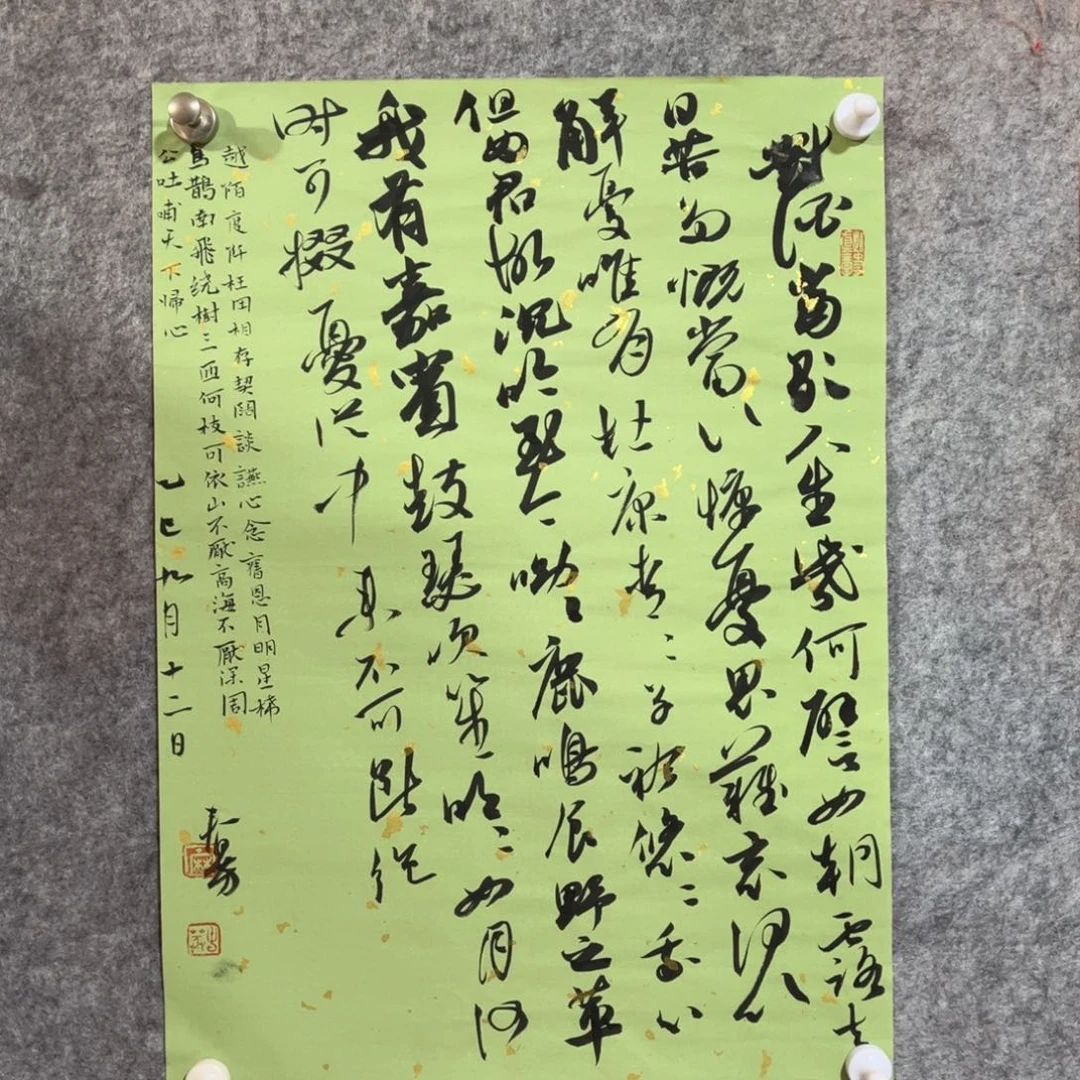 對酒當歌人生幾何譬如朝露去
日苦多慨當以慷憂思難忘何以
解憂唯有杜康青〻子衿悠〻我心
但為君故沉吟至今呦〻鹿鳴食野之苹
我有嘉賓鼓瑟吹笙明〻如月何
時可掇憂從中來不可斷絕
越陌度阡枉用相存契闊談讌心念舊恩月明星稀
烏鵲南飛繞樹三匝何枝可依山不厭高海不厭深周
公吐哺天下歸心 乙巳九月十二日